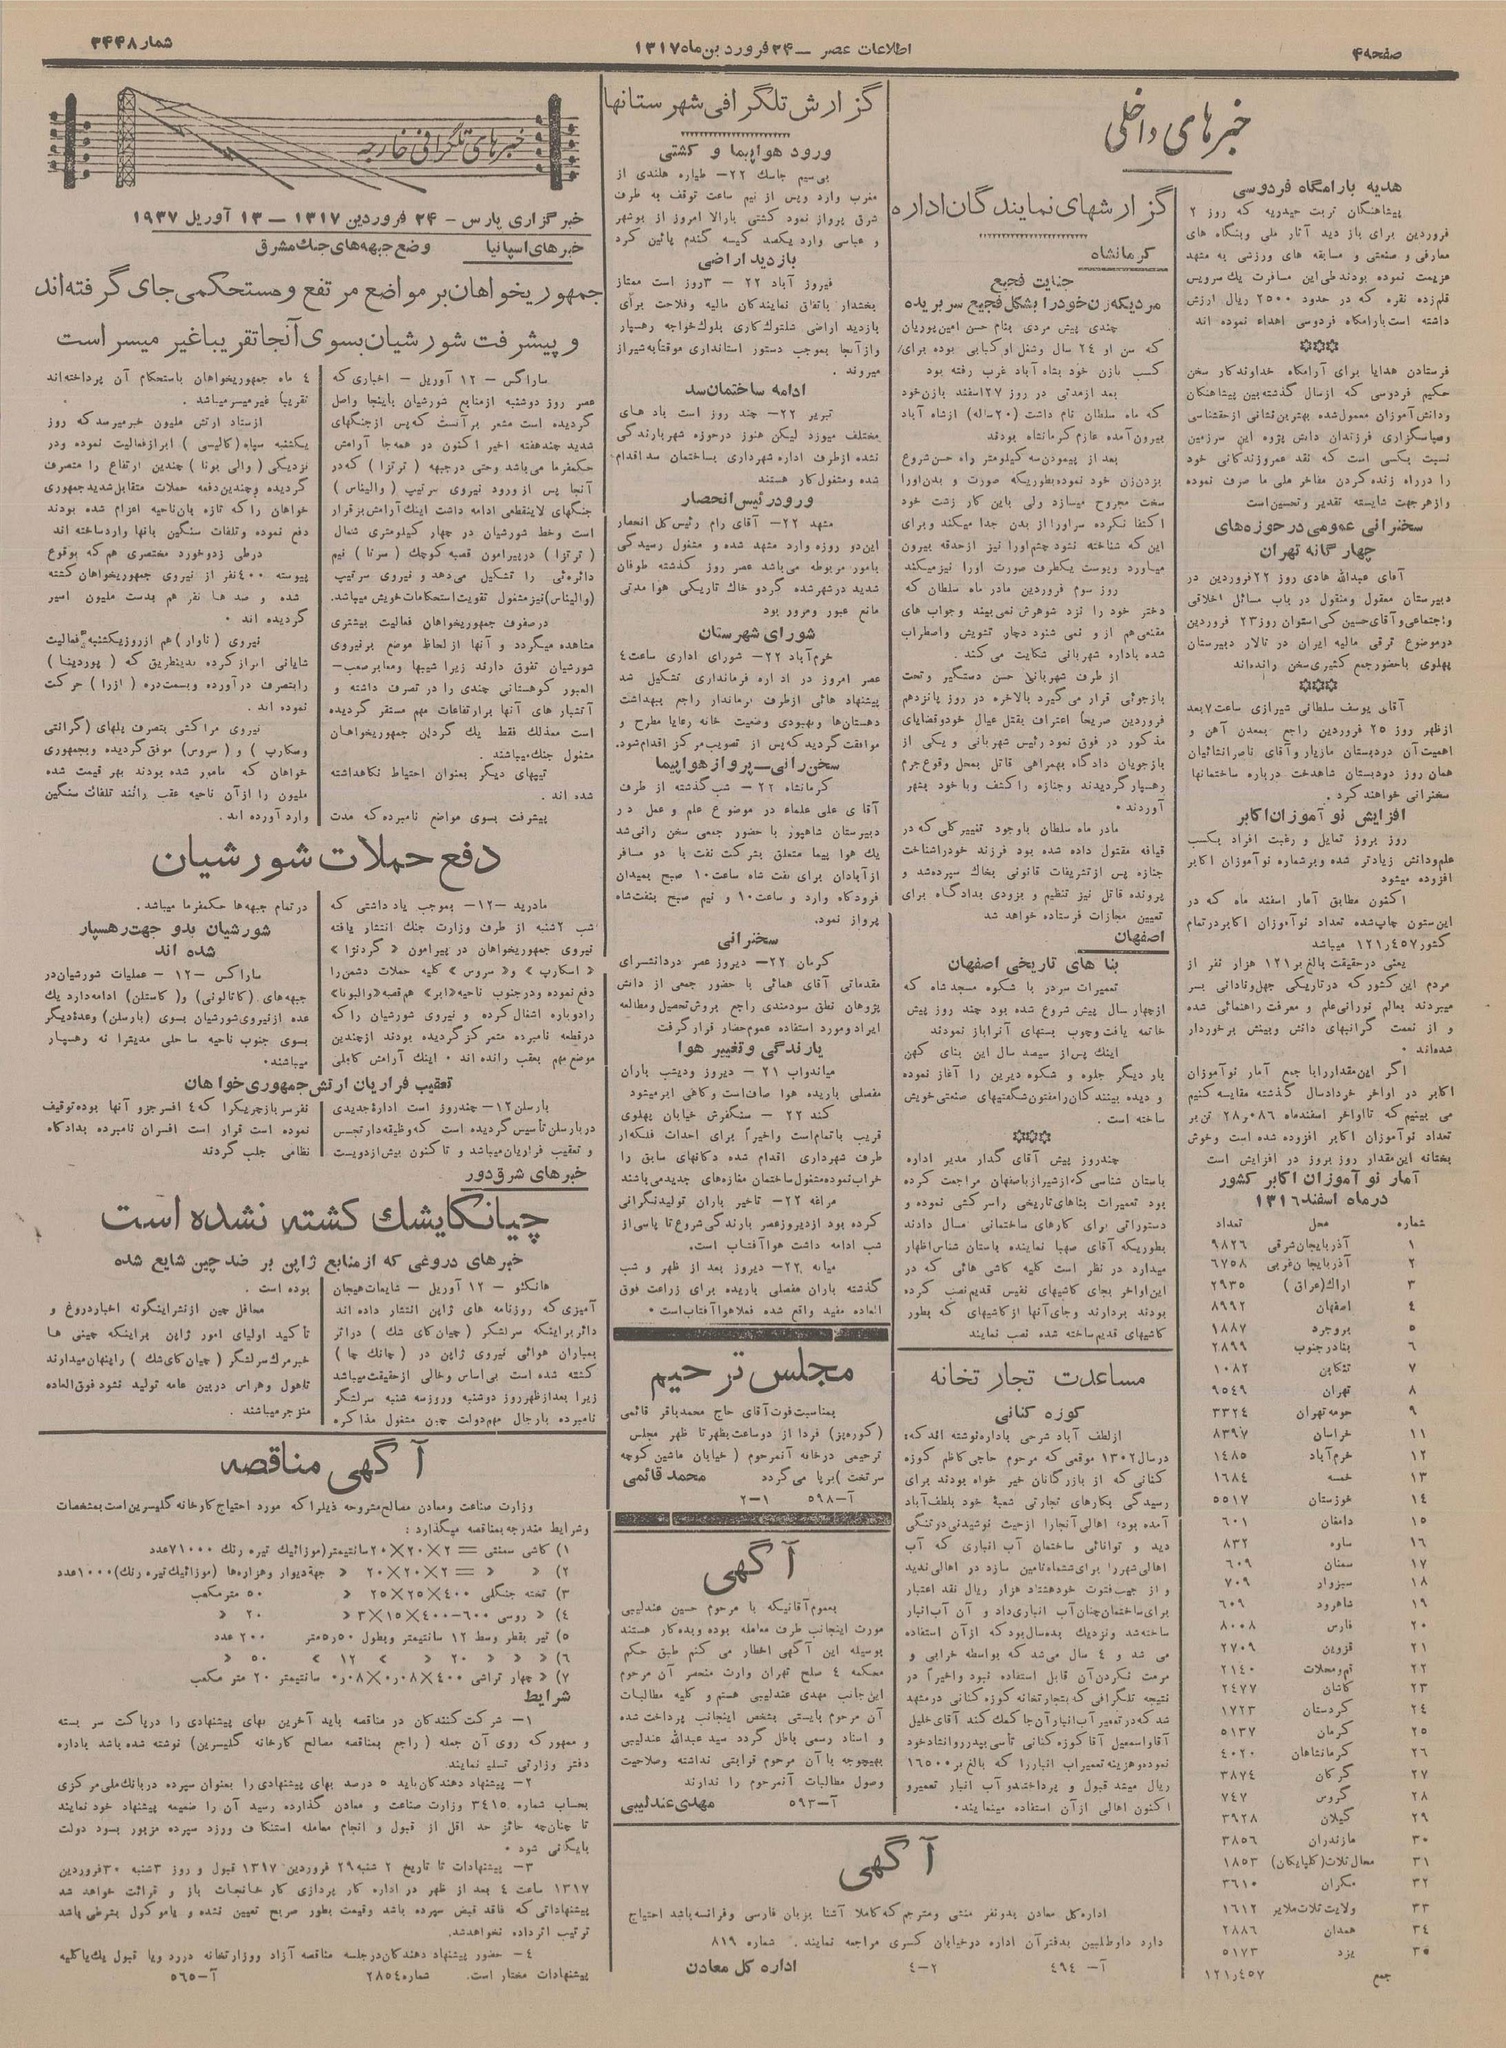 صفحه ۴
اطلاعات عصر — ۲۴ فروردین ماه ۱۳۱۷
شمار ۳۴۴۸
خبرهای داخلی
هدیه بارامگاه فردوسی
پیشاهنگان تربت حیدریه که روز ۲
فروردین برای باز دید آثار ملی وبنگاه های
معارفی و صنعتی و مسابقه های ورزشی به مشهد
عزیمت نموده بودند طی این مسافرت یك سرویس
قلم زده نقره که در حدود ۲۵۰۰ ریال ارزش
داشته است بارامگاه فردوسی اهداء نموده اند
فرستادن هدایا برای آرامگاه خداوندکار سخن
حکیم فردوسی که ازسال گذشته بین پیشاهنگان
ودانش آموزان معمول شده بهترین نشانی از حقشناسی
وسپاسگزاری فرزندان دانش پژوه این سرزمین
نسبت بکسی است که نقد عمروزندگانی خود
را درراه زنده کردن مفاخر ملی ما صرف نموده
وازهرجهت شایسته تقدیر وتحسین است
سخنرانی عمومی در حوزه های
چهار گانه تهران
آقای عبدالله هادی روز ۲۲ فروردین در
دبیرستان معقول ومنقول در باب مسائل اخلاقی
واجتماعی و آقای حسین کی استوان روز ۲۳ فروردین
در موضوع ترقی مالیه ایران در تالار دبیرستان
پهلوی باحضور جمع کثیری سخن رانده اند
آقای یوسف سلطانی شیرازی ساعت ۷ بعد
ازظهر روز ۲۵ فروردین راجع بمعدن آهن و
اهمیت آن دردبستان مازیار و آقای ناصر انتائیان
همان روز دردبستان شاهدخت درباره ساختمانها
سخنرانی خواهند کرد .
افزایش نو آموزان اکابر
روز بروز تمایل و رغبت افراد بکسب
علم ودانش زیادتر شده وبرشماره نو آموزان اکابر
افزوده میشود
اکنون مطابق آمار اسفند ماه که در
این ستون چاپ شده تعداد نو آموزان اکابر در تمام
کشور ۱۲۱٫۴۵۷ میباشد
یعنی درحقیقت بالغ بر ۱۲۱ هزار نفر از
مردم این کشور که درتاریکی جهل ونادانی بسر
میبردند بعالم نورانی علم و معرفت راهنمائی شده
و از نعمت گرانبهای دانش وبینش برخوردار
شده اند .
اگر این مقدار رابا جمع آمار نو آموزان
اکابر در اواخر خردادسال گذشته مقایسه کنیم
می بینیم که تااواخر اسفندماه ۲۸٫۰۸۶ تن بر
تعداد نو آموزان اکابر افزوده شده است وخوش
بختانه این مقدار روز بروز در افزایش است
آمار نو آموزان اکابر کشور
درماه اسفند ۱۳۱۶
شماره محل تعداد
۱ آذربایجان شرقی ۹۸۲۶
۲ آذربایجان غربی ۶۷۵۸
۳ اراك (عراق) ۲۹۳۵
۴ اصفهان ۸۹۹۲
۵ بروجرد ۱۸۸۷
۶ بنادر جنوب ۲۸۹۹
۷ تنکابن ۱۰۸۲
۸ تهران ۹۵۴۹
۹ حومه تهران ۳۳۲۴
۱۱ خراسان ۸۳۹۷
۱۲ خرم آباد ۱۴۸۵
۱۳ خمسه ۱۶۸۴
۱۴ خوزستان ۵۵۱۷
۱۵ دامغان ۶۰۱
۱۶ ساوه ۸۳۲
۱۷ سمنان ۶۰۹
۱۸ سبزوار ۷۰۹
۱۹ شاهرود ۶۰۹
۲۰ فارس ۸۰۰۸
۲۱ قزوین ۲۷۰۹
۲۲ قم ومحلات ۲۱۴۰
۲۳ کاشان ۲۴۷۷
۲۴ کردستان ۱۷۲۳
۲۵ کرمان ۵۱۳۷
۲۶ کرمانشاهان ۴۰۲۰
۲۷ گرگان ۳۸۷۴
۲۸ گروس ۷۴۷
۲۹ گیلان ۳۹۲۸
۳۰ مازندران ۳۸۵۶
۳۱ محال ثلاث (گلپایگان) ۱۸۵۳
۳۲ مکران ۳۶۱۰
۳۳ ولایت ثلاث ملایر ۱۶۱۲
۳۴ همدان ۲۸۸۶
۳۵ یزد ۵۱۷۳
جمع ۱۲۱٫۴۵۷
گزارشهای نمایندگان اداره
کرمانشاه
جنایت فجیع
مردیکه زن خودرا بشکل فجیع سر بریده
چندی پیش مردی بنام حسن امین پوریان
که سن او ۲۴ سال وشغل او کبابی بوده برای
کسب بازن خود بشاه آباد غرب رفته بود
بعد ازمدتی در روز ۲۷ اسفند بازن خود
که ماه سلطان نام داشت (۲۰ ساله) ازشاه آباد
بیرون آمده عازم کرمانشاه بودند
بعد از پیمودن سه کیلومتر راه حسن شروع
بزدن زن خود نموده بطوریکه صورت و بدن اورا
سخت مجروح میسازد ولی باین کار زشت خود
اکتفا نکرده سر اورا از بدن جدا میکند وبرای
این که شناخته نشود چشم اورا نیز ازحدقه بیرون
میاورد وپوست یکطرف صورت اورا نیز میکند
روز سوم فروردین مادر ماه سلطان که
دختر خود را نزد شوهرش نمی بیند وجواب های
مقنعی هم از و نمی شنود دچار تشویش واضطراب
شده باداره شهربانی شکایت می کند .
از طرف شهربانی حسن دستگیر وتحت
بازجوئی قرار می گیرد بالاخره در روز پانزدهم
فروردین صریحا اعتراف بقتل عیال خودوقضایای
مذکور در فوق نمود رئیس شهربانی و یکی از
بازجویان دادگاه بهمراهی قاتل بمحل وقوع جرم
رهسپار گردیدند وجنازه را کشف وبا خود بشهر
آوردند .
مادر ماه سلطان باوجود تغییر کلی که در
قیافه مقتول داده شده بود فرزند خودراشناخت
جنازه پس از تشریفات قانونی بخاك سپرده شد و
پرونده قاتل نیز تنظیم و بزودی بدادگاه برای
تعیین مجازات فرستاده خواهد شد
اصفهان
بنا های تاریخی اصفهان
تعمیرات سردر با شکوه مسجد شاه که
ازچهار سال پیش شروع شده بود چند روز پیش
خاتمه یافت وچوب بستهای آنرا باز نمودند
اینك پس از سیصد سال این بنای کهن
بار دیگر جلوه و شکوه دیرین را آغاز نموده
و دیده بینندگان رامفتون شگفتیهای صنعتی خویش
ساخته است .
چندروز پیش آقای گدار مدیر اداره
باستان شناسی که ازشیراز باصفهان مراجعت کرده
بود تعمیرات بناهای تاریخی راسرکشی نموده و
دستوراتی برای کارهای ساختمانی مسال دادند
بطوریکه آقای صهبا نماینده باستان شناس اظهار
میدارد در نظر است کلیه کاشی هائی که در
این اواخر بجای کاشیهای نفیس قدیم نصب کرده
بودند بردارند وجای آنها از کاشیهای که بطور
کاشیهای قدیم ساخته شده نصب نمایند
مساعدت تجار تخانه
کوزه کنانی
ازلطف آباد شرحی باداره نوشته اند که:
درسال ۱۳۰۲ موقعی که مرحوم حاجی کاظم کوزه
کنانی که از بازرگانان خیر خواه بودند برای
رسیدگی بکارهای تجارتی شعبهٔ خود بلطف آباد
آمده بود، اهالی آنجارا ازحیث نوشیدنی درتنگی
دید و توانائی ساختمان آب انباری که آب
اهالی شهررا برای ششماه تامین سازد در اهالی ندید
و از جیب فتوت خودهشتاد هزار ریال نقد اعتبار
برای ساختمان چنان آب انباری داد و آن آب انبار
ساخته شد ونزدیك بده سال بود که از آن استفاده
می شد و ۴ سال می شد که بواسطه خرابی و
مرمت نکردن آن قابل استفاده نبود واخیراً در
نتیجه تلگرافی که بتجار تخانه کوزه کنانی درمشهد
شد که در تعمیر آب انبار آن جا کمك کند آقای خلیل
آقا و اسمعیل آقا کوزه کنانی تأسی بپدر روانشاد خود
نموده هزینه تعمیراب انباررا که بالغ بر ۱۶۵۰۰
ریال میشد قبول و پرداخته و آب انبار تعمیر و
اکنون اهالی از آن استفاده مینمایند .
گزارش تلگرافی شهرستانها
ورود هواپیما و کشتی
بی سیم جاسك ۲۲— طیاره هلندی از
مغرب وارد وپس از نیم ساعت توقف به طرف
شرق پرواز نمود کشتی بارالا امروز از بوشهر
و عباسی وارد یکصد کیسه گندم پائین کرد
بازدید اراضی
فیروز آباد ۲۲ — ۳ روز است ممتاز
بخشدار باتفاق نمایندگان مالیه وفلاحت برای
بازدید اراضی شلتوك کاری بلوك خواجه رهسپار
واز آنجا بموجب دستور استانداری موقتاً به شیراز
میروند .
ادامه ساختمان سد
تبریز ۲۲— چند روز است باد های
مختلف میوزد لیکن هنوز درحوزه شهر بارندگی
نشده ازطرف اداره شهرداری بساختمان سد اقدام
شده ومشغول کار هستند
ورود رئیس انحصار
مشهد ۲۲— آقای رام رئیس کل انحصار
این دو روزه وارد مشهد شده و مشغول رسیدگی
بامور مربوطه می باشد عصر روز گذشته طوفان
شدید در شهر شده گردو خاك تاریکی هوا مدتی
مانع عبور ومرور بود
شورای شهرستان
خرم آباد ۲۲— شورای اداری ساعت ۴
عصر امروز در اداره فرمانداری تشکیل شد
پیشنهاد هائی ازطرف فرماندار راجع ببهداشت
دهستان ها وبهبودی وضعیت خانه رعایا مطرح و
موافقت گردید که پس از تصویب مرکز اقدام شود.
سخن رانی — پرواز هواپیما
کرمانشاه ۲۲ — شب گذشته از طرف
آقای علی علماء در موضوع علم و عمل در
دبیرستان شاهپور با حضور جمعی سخن رانی شد
یك هوا پیما متعلق بشرکت نفت با دو مسافر
از آبادان برای نفت شاه ساعت ۱۰ صبح بمیدان
فرودگاه وارد و ساعت ۱۰ و نیم صبح بنفت شاه
پرواز نمود.
سخنرانی
کرمان ۲۲— دیروز عصر دردانشسرای
مقدماتی آقای همائی با حضور جمعی از دانش
پژوهان نطق سودمندی راجع بروش تحصیل ومطالعه
ایراد ومورد استفاده عموم حضار قرار گرفت
بارندگی وتغییر هوا
میاندواب ۲۱ — دیروز ودیشب باران
مفصلی باریده هوا صاف است وگاهی ابر میشود
گند ۲۲ — سنگفرش خیابان پهلوی
قریب باتمام است واخیراً برای احداث فلکه از
طرف شهرداری اقدام شده دکانهای سابق را
خراب نموده مشغول ساختمان مغازه های جدید می باشند
مراغه ۲۲— تاخیر باران تولید نگرانی
کرده بود از دیروز عصر بارندگی شروع تا پاسی از
شب ادامه داشت هوا آفتاب است.
میانه ۲۲— دیروز بعد از ظهر و شب
گذشته باران مفصلی باریده برای زراعت فوق
العاده مفید واقع شده فعلا هوا آفتاب است .
مجلس ترحیم
بمناسبت فوت آقای حاج محمد باقر قائمی
(کوره پز) فردا از دوساعت بظهر تا ظهر مجلس
ترحیمی درخانه آنمرحوم (خیابان ماشین کوچه
سرتخت) برپا می گردد محمد قائمی
آ—۵۹۸ ۱—۲
آگهی
بعموم آقایانیکه با مرحوم حسین عندلیبی
مورث اینجانب طرف معامله بوده وبده کار هستند
بوسیله این آگهی اخطار می کنم طبق حکم
محکمه ۴ صلح تهران وارث منحصر آن مرحوم
این جانب مهدی عندلیبی هستم و کلیه مطالبات
آن مرحوم بایستی بشخص اینجانب پرداخت شده
و اسناد رسمی باطل گردد سید عبدالله عندلیبی
بهیچوجه با آن مرحوم قرابتی نداشته وصلاحیت
وصول مطالبات آنمرحوم را ندارند
آ—۵۹۳ مهدی عندلیبی
آگهی
اداره کل معادن بدونفر منشی ومترجم که کاملا آشنا بزبان فارسی وفرانسه باشد احتیاج
دارد داوطلبین بدفتر آن اداره درخیابان کسری مراجعه نمایند . شماره ۸۱۹
آ— ۴۹۴ ۲—۴ اداره کل معادن
خبرهای تلگرافی خارجه
خبرگزاری پارس — ۲۴ فروردین ۱۳۱۷ — ۱۳ آوریل ۱۹۳۷
خبرهای اسپانیا
وضع جبهه های جنك مشرق
جمهوریخواهان بر مواضع مرتفع و مستحکمی جای گرفته اند
و پیشرفت شورشیان بسوی آنجا تقریبا غیر میسر است
ساراگس — ۱۲ آوریل — اخباری که
عصر روز دوشنبه ازمنابع شورشیان باینجا واصل
گردیده است مشعر بر آنست که پس ازجنگهای
شدید چندهفته اخیر اکنون در همه جا آرامش
حکمفرما می باشد وحتی درجبهه (ترتزا) که در
آنجا پس از ورود نیروی سرتیپ (والیناس)
جنگهای لاینقطعی ادامه داشت اینك آرامش برقرار
است وخط شورشیان در چهار کیلومتری شمال
(ترتزا) درپیرامون قصبه کوچك (سرتا) نیم
دائره ئی را تشکیل می دهد و نیروی سرتیپ
(والیناس) نیز مشغول تقویت استحکامات خویش میباشد.
درصفوف جمهوریخواهان فعالیت بیشتری
مشاهده میگردد و آنها از لحاظ موضع بر نیروی
شورشیان تفوق دارند زیرا شیبها ومعابر صعب—
العبور کوهستانی چندی را در تصرف داشته و
آتشبار های آنها برارتفاعات مهم مستقر گردیده
است معذلك فقط یك گردان جمهوریخواهان
مشغول جنك میباشند .
تیپهای دیگر بعنوان احتیاط نگاهداشته
شده اند .
پیشرفت بسوی مواضع نامبرده که مدت
۴ ماه جمهوریخواهان باستحکام آن پرداخته اند
تقریباً غیر میسر میباشد .
ازستاد ارتش ملیون خبر میرسد که روز
یکشنبه سپاه (گالیسی) ابراز فعالیت نموده ودر
نزدیکی (والی بونا) چندین ارتفاع را متصرف
گردیده وچندین دفعه حملات متقابل شدید جمهوری
خواهان را که تازه بان ناحیه اعزام شده بودند
دفع نموده وتلفات سنگین بانها وارد ساخته اند
درطی زدوخورد مختصری هم که بوقوع
پیوسته ۴۰۰ نفر از نیروی جمهوریخواهان کشته
شده و صد ها نفر هم بدست ملیون اسیر
گردیده اند .
نیروی (ناوار) هم ازروز یکشنبه فعالیت
شایانی ابراز کرده بدینطریق که (پوردینا)
رابتصرف در آورده وبسمت دره (ازرا) حرکت
نموده اند .
نیروی مراکشی بتصرف پلهای (گرانتی
وسکارپ) و (سروس) موفق گردیده وبجمهوری
خواهان که مامور شده بودند بهر قیمت شده
ملیون را از آن ناحیه عقب رانند تلفات سنگین
وارد آورده اند .
دفع حملات شورشیان
مادرید —۱۲— بموجب یادداشتی که
شب ۲ شنبه از طرف وزارت جنك انتشار یافته
نیروی جمهوریخواهان در پیرامون «گردنزا»
«اسکارپ» و «سروس» کلیه حملات دشمن را
دفع نموده ودرجنوب ناحیه «ابر» هم قصبه «والبونا»
رادوباره اشغال کرده و نیروی شورشیان را که
در قطعه نامبرده متمرکز گردیده بودند ازچندین
موضع مهم بعقب رانده اند . اینك آرامش کاملی
در تمام جبهه ها حکمفرما میباشد .
شورشیان بدو جهت رهسپار
شده اند
ساراگس —۱۲— عملیات شورشیان در
جبهه های (کاتالونی) و (کاستلن) ادامه دارد یك
عده از نیروی شورشیان بسوی (بارسلن) وعدهٔ دیگر
بسوی جنوب ناحیه ساحلی مدیترانه رهسپار
میباشند.
تعقیب فراریان ارتش جمهوری خواهان
بارسلن ۱۲— چندروز است ادارهٔ جدیدی
دربارسلن تأسیس گردیده است که وظیفه دار تجسس
و تعقیب فراریان میباشد و تا کنون بیش از دویست
نفر سرباز چریکرا که ۴ افسر جزو آنها بوده توقیف
نموده است قرار است افسران نامبرده بدادگاه
نظامی جلب گردند
خبرهای شرق دور
چیانکایشك کشته نشده است
خبرهای دروغی که از منابع ژاپن بر ضد چین شایع شده
هانکئو — ۱۲ آوریل — شایعات هیجان
آمیزی که روزنامه های ژاپن انتشار داده اند
دائر براینکه سرلشگر (چیان کای شك) در اثر
بمباران هوائی نیروی ژاپن در (چانك چا)
کشته شده است بی اساس وخالی از حقیقت میباشد
زیرا بعد از ظهر روز دوشنبه وروز سه شنبه سرلشگر
نامبرده بارجال مهم دولت چین مشغول مذاکره
بوده است .
محافل چین از نشر اینگونه اخبار دروغ و
تأکید اولیای امور ژاپن براینکه چینی ها
خبرمرك سرلشگر (چیان کای شك) را پنهان میدارند
تاهول وهراس دربین عامه تولید نشود فوق العاده
منزجر میباشند .
آگهی مناقصه
وزارت صناعت ومعادن مصالح مشروحه ذیلرا که مورد احتیاج کارخانه گلیسرین است بمشخصات
وشرایط مندرجه بمناقصه میگذارد :
۱) کاشی سمنتی = ۲×۲۰×۲۰ سانتیمتر (موزائیك تیره رنك ۷۱۰۰۰ عدد
۲) « « = ۲×۲۰×۲۰ « جهة دیوار وهزاره ها (موزائیك تیره رنك) ۱۰۰۰ عدد
۳) تخته جنگلی ۴۰۰×۲۵×۲۵ « ۵۰ متر مکعب
۴) « روسی ۶۰۰—۴۰۰×۱۵×۳ « ۲۰ «
۵) تیر بقطر وسط ۱۲ سانتیمتر وبطول ۵٫۵۰ متر ۲۰۰ عدد
۶) « « « ۲۰ « « ۱۲ « ۵۰ «
۷) « چهار تراشی ۴۰۰×۰٫۰۸×۰٫۰۸ سانتیمتر ۲۰ متر مکعب
شرایط
۱— شرکت کنندگان در مناقصه باید آخرین بهای پیشنهادی را درپاکت سر بسته
و ممهور که روی آن جمله (راجع بمناقصه مصالح کارخانه گلیسرین) نوشته شده باشد باداره
دفتر وزارتی تسلیم نمایند.
۲— پیشنهاد دهندگان باید ۵ درصد بهای پیشنهادی را بعنوان سپرده دربانك ملی مرکزی
بحساب شماره ۳۴۱۵ وزارت صناعت و معادن گذارده رسید آن را ضمیمه پیشنهاد خود نمایند
تا چنان چه حائز حد اقل از قبول و انجام معامله استنکاف ورزد سپرده مزبور بسود دولت
بایگانی شود .
۳— پیشنهادات تا تاریخ ۲ شنبه ۲۹ فروردین ۱۳۱۷ قبول و روز ۳ شنبه ۳۰ فروردین
۱۳۱۷ ساعت ۴ بعد از ظهر در اداره کار پردازی کارخانجات باز و قرائت خواهد شد
پیشنهاداتی که فاقد قبض سپرده باشد وقیمت بطور صریح تعیین نشده و یا موکول بشرطی باشد
ترتیب اثر داده نخواهد شد.
۴— حضور پیشنهاد دهندگان درجلسه مناقصه آزاد ووزارتخانه دررد ویا قبول یك یا کلیه
پیشنهادات مختار است. شماره ۲۸۵۴ آ—۵۶۵